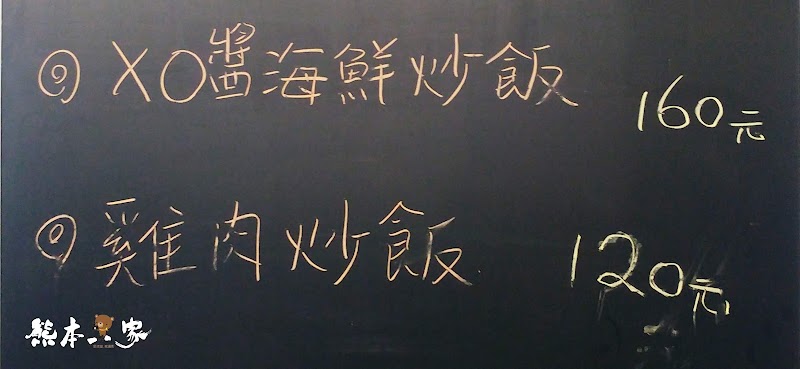 XO醬海鮮炒飯 160元
雞肉炒飯 120元
熊本一家